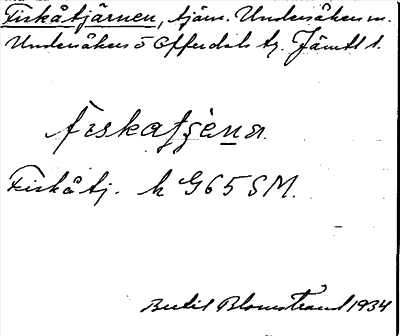 Fiskåtjärnen, tjärn. Undersåkers sn.
Undersåkers o Offerdals tg. Jämtl l.
fıskatjèna.
Fiskåtj. k G65SM.
Bertil Blomstrand 1934